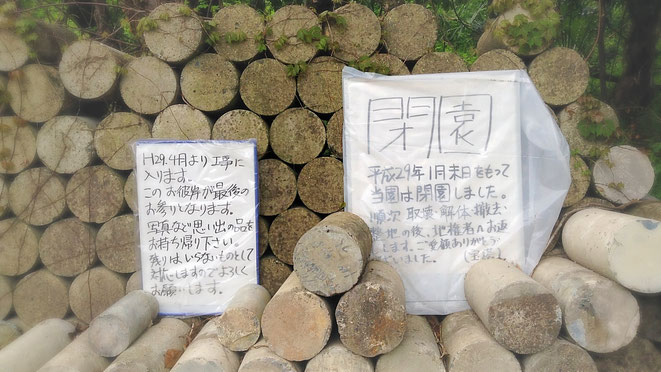 H29.4月より工事に
入ります。
このお彼岸が最後の
お参りとなります。
写真など思い出の品を
お持ち帰り下さい。
残りはいらないものとして
対応しますのでよろしく
お願いします。
閉園
平成29年1月末日をもって
当園は閉園しました。
順次 取壊・解体・撤去・
地の後、地権者へお返
します。ご愛顧ありがとう
いました。